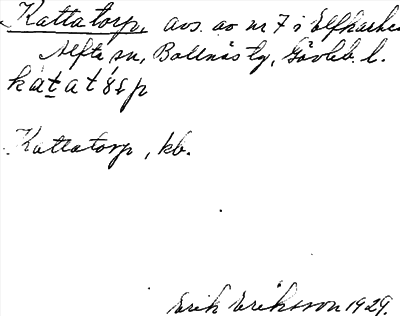 Kattatorp, avs. av nr 7 i Elfkarhe
Alfta sn, Bollnäs tg, Gävleb. l.
Kattatorp, kb.
Erik Eriksson 1929.